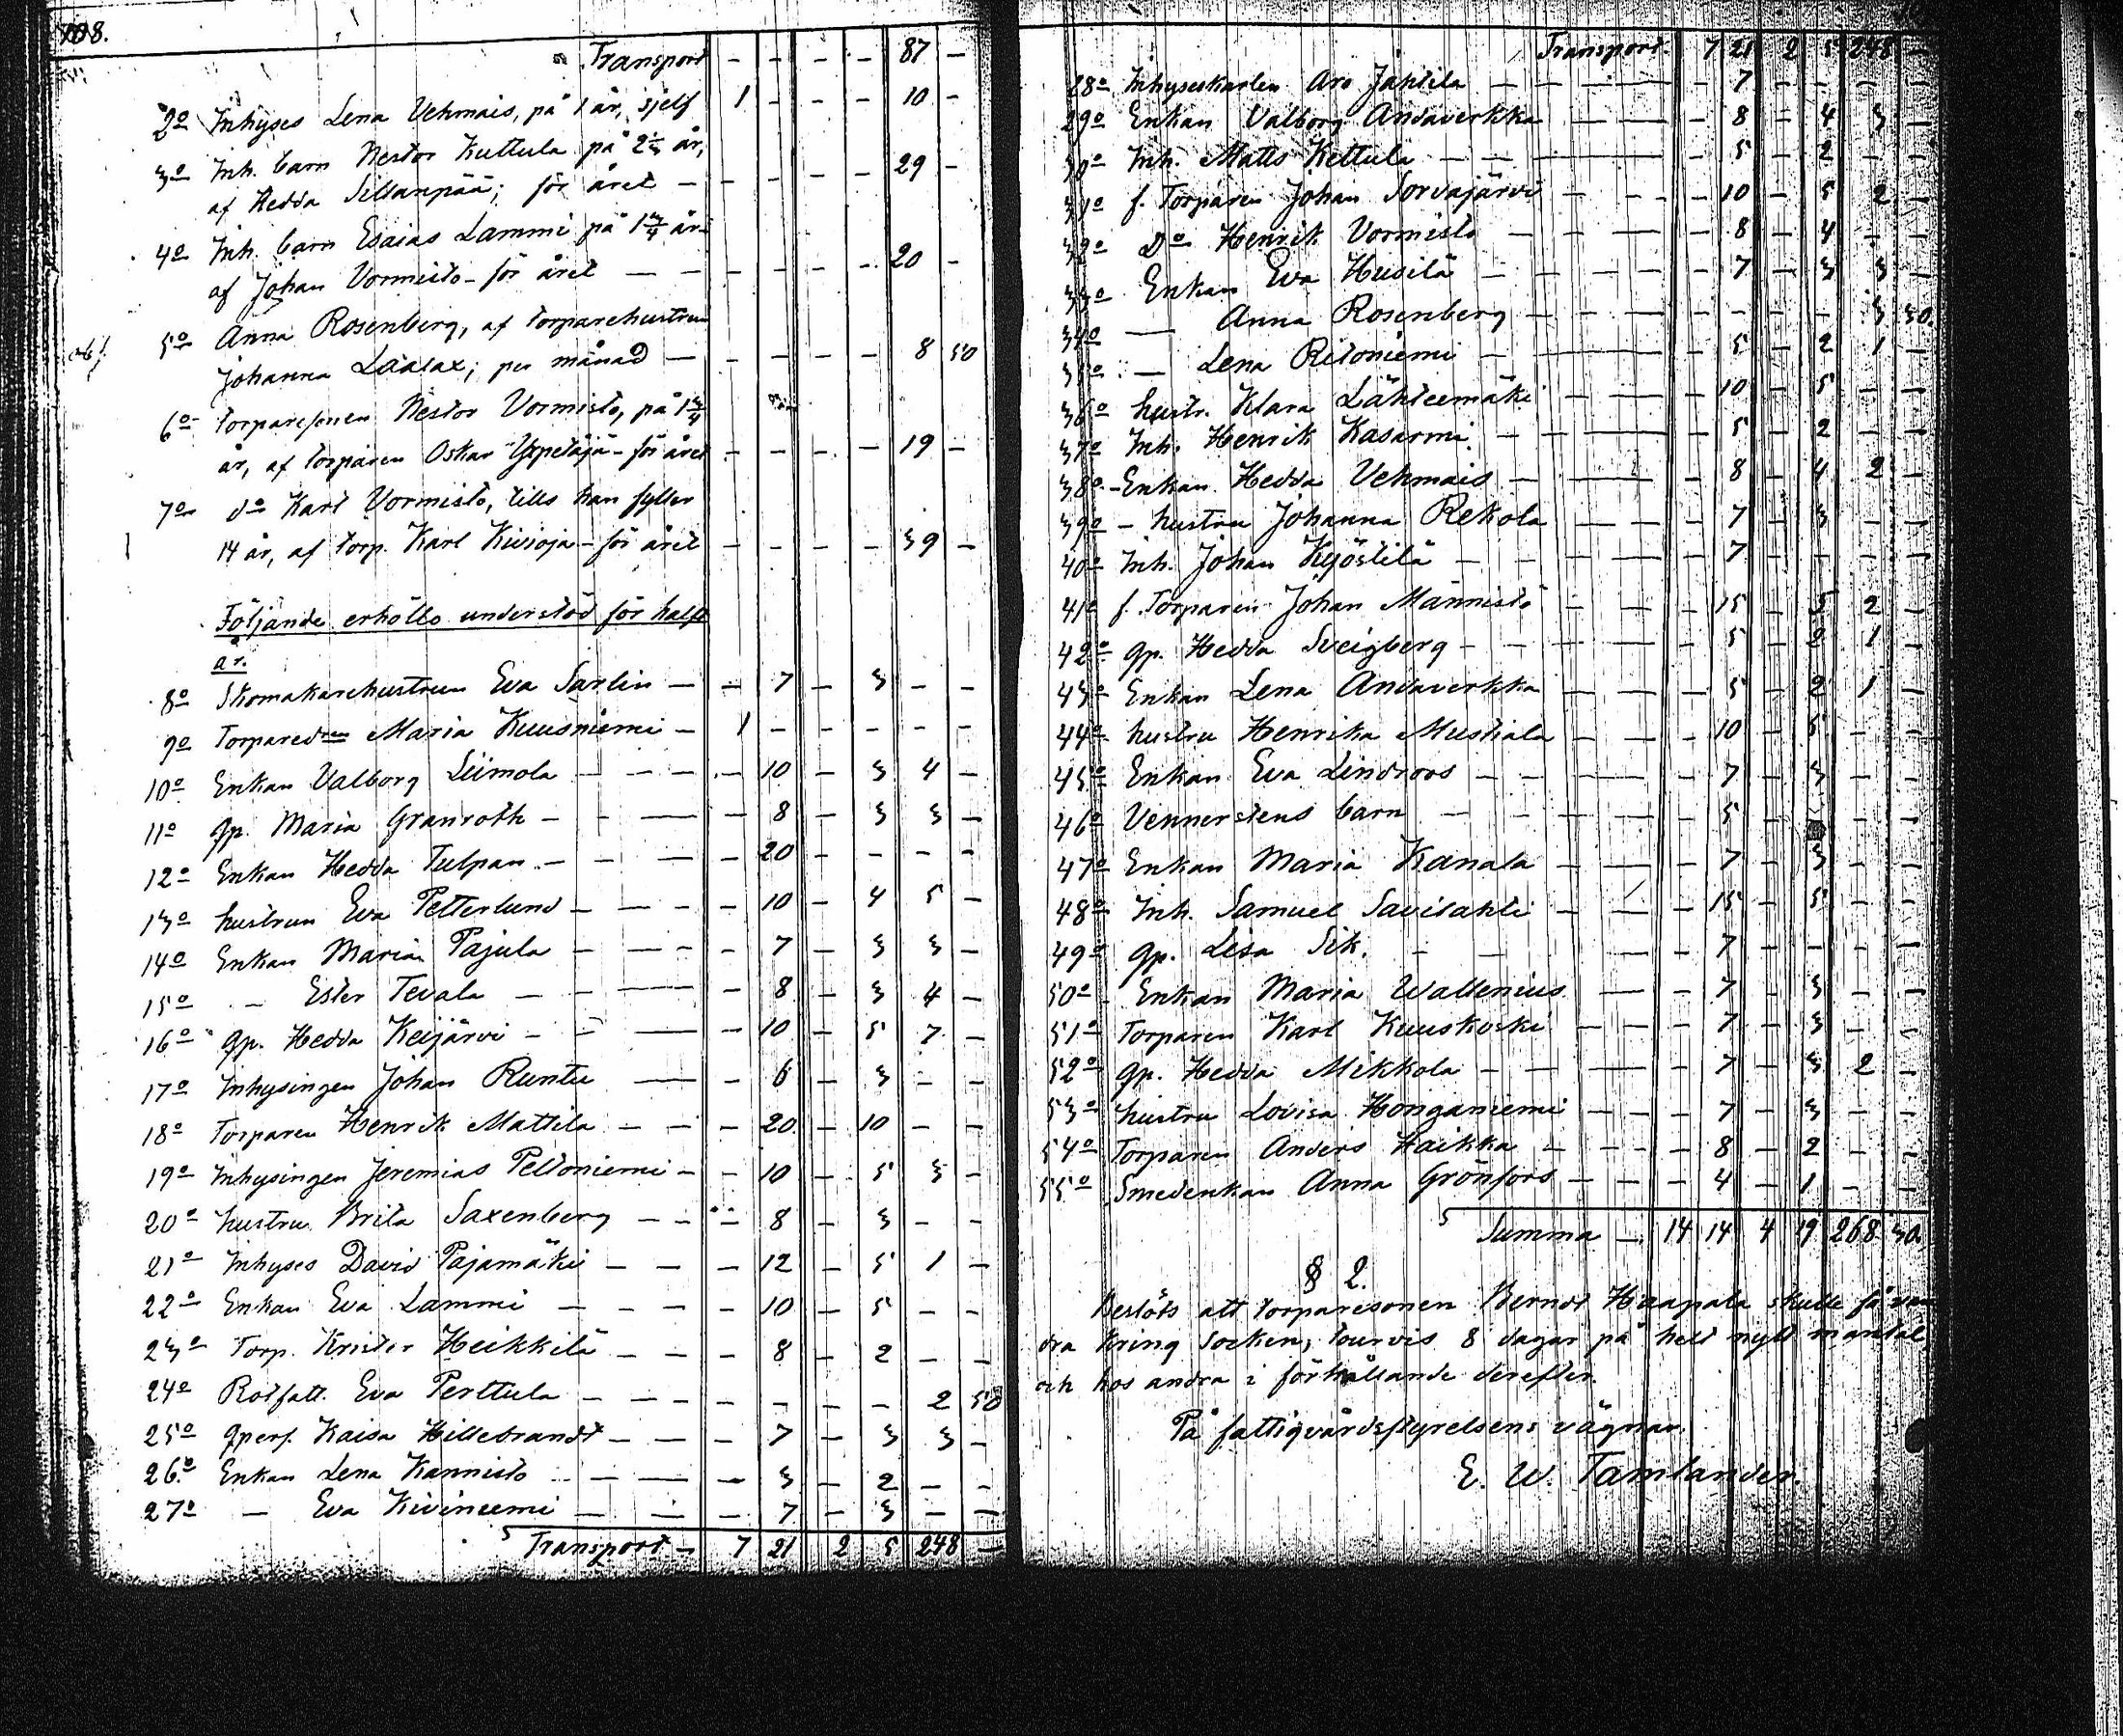 108.
Transport - - - - 87 -
2o Inhyses Lena Vehmais, på 1 år, sjelf 1 - - - 10 -
3o Inh. barn Nestor Kuttula på 2 1/3 år,
af Hedda Sillanpää; för året - - - - - 29 -
4o Inh. barn Esaias Lammi på 1 3/4 år
af Johan Vormisto - för året - - - - - - 20 -
5o Anna Rosenberg, af torparehustrun
Johanna Läälax; per månad - - - - - 8 50
6o torparesonen Nestor Vormisto, på 1 3/4
år, af torparen Oskar Yppetäjä - för året - - - - 19 -
7o do Karl Vormisto, tills han fyller
14 år, af torp. Karl Kivioja - för året - - - - 39 -
Följande erhöllo understöd för halft
år.
8o Skomakarehustrun Eva Sarlin - - 7 - 3 - -
9o Torparedrn Maria Kuusniemi - 1 - - - - -
10o Enkan Valborg Liimola - - - - - 10 - 3 4 -
11o Qp. Maria Granroth - - - - 8 - 3 3 -
12o Enkan Hedda Tulpan - - - - 20 - - - -
13o hustrun Eva Petterlund - - - - - 10 - 4 5 -
14o Enkan Maria Pajula - - - - - 7 - 3 3 -
15o - Ester Tevala - - - - - 8 - 3 4 -
16o Qp. Hedda Keijärvi - - - - 10 - 5 7 -
17o Inhysingen Johan Runtu - - 6 - 3 - -
18o Torparen Henrik Mattila - - - - 20 - 10 - -
19o Inhysingen Jeremias Peltoniemi - - 10 - 5 3 -
20o hustru Brita Saxenberg - - - 8 - 3 - -
21o Inhyses David Pajamäki - - - 12 - 5 1 -
22o Enkan Eva Lammi - - - - 10 - 5 - -
23o Torp. Krister Heikkilä - - - 8 - 2 - -
24o Rotfatt. Eva Perttula - - - - - - 2 50
25o Qpers. Kaisa Hillebrandt - - - 7 - 3 3 -
26o Enkan Lena Kannisto - - - 3 - 2 - -
27o - Eva Kiviniemi - - - 7 - 3 - -
Transport - 7 21 2 5 248 -
Transport 7 21 2 5 248 -
28o Inhyseskarlen Aro Jahtila - - - - 7 - - - -
29o Enkan Valborg Andaverkka - - - 8 - 4 3 -
30o Inh. Matts Kettula - - - - 5 - 2 - -
31o f. Torparen Johan Sorvajärvi - - - - 10 - 5 2 -
32o Do Henrik Vormisto - - - - 8 - 4 - -
33o Enkan Eva Husilä - - - - 7 - 3 3 -
34o - Anna Rosenberg - - - - - - - 3 30.
35o - Lena Ritoniemi - - - 5 - 2 1 -
36o hustr. Klara Lähteemäki - - - 10 - 5 - -
37o Inh. Henrik Kasarmi - - - 5 - 2 - -
38o - Enkan Hedda Vehmais - - - 8 - 4 2 -
39o - hustru Johanna Rekola - - - 7 - 3 - -
40o Inh. Johan Kyöstilä - - - - 7 - - - -
41o f. Torparen Johan Männistö - - - 15 - 5 2 -
42o Qp. Hedda Sveigberg - - - - 5 - 2 1 -
43o Enkan Lena Andaverkka - - - 5 - 2 1 -
44o hustru Henrika Mustiala - - - 10 - 5 - -
45o Enkan Eva Lindroos - - - - - 7 - 3 - -
46o Vennerstens barn - - - - 5 - - -
47o Enkan Maria Kanala - - - 7 - 3 - -
48o Inh. Samuel Savilahti - - - 15 - 5 - -
49o Qp. Lisa Sik. - - - - 7 - - - -
50o Enkan Maria Wallenius - - 7 - 3 - -
51o Torparen Karl Kuuskoski - - - 7 - 3 - -
52o Qp. Hedda Mikkola - - - - 7 - 3 2 -
53o hustru Lovisa Honganiemi - - - - 7 - 3 - -
54o Torparen Anders Haikka - - - - 8 - 2 - -
55o Smedenkan Anna Grönfors - - - - 4 - 1 - -
Summa - 14 14 4 19 268 30.
§ 2.
Beslöts att torparesonen Berndt Haapala skulle få van
dra kring socken, tourvis 8 dagar på helt nytt mantal
och hos andra i förhållande derefter.
På fattigvårdsstyrelsens vägnar.
E. W. Tamlander.